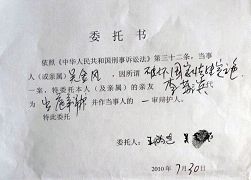 委托书
依照《中华人民共和国刑事诉讼法》第三十二条,当事
人(或亲属)吴金风,因所谓
一案,特委托本人(及亲属)的亲友
为 出庭辩护 并作当事人的 一 审辩护人。
特此委托
委托人:
2010年7月30日